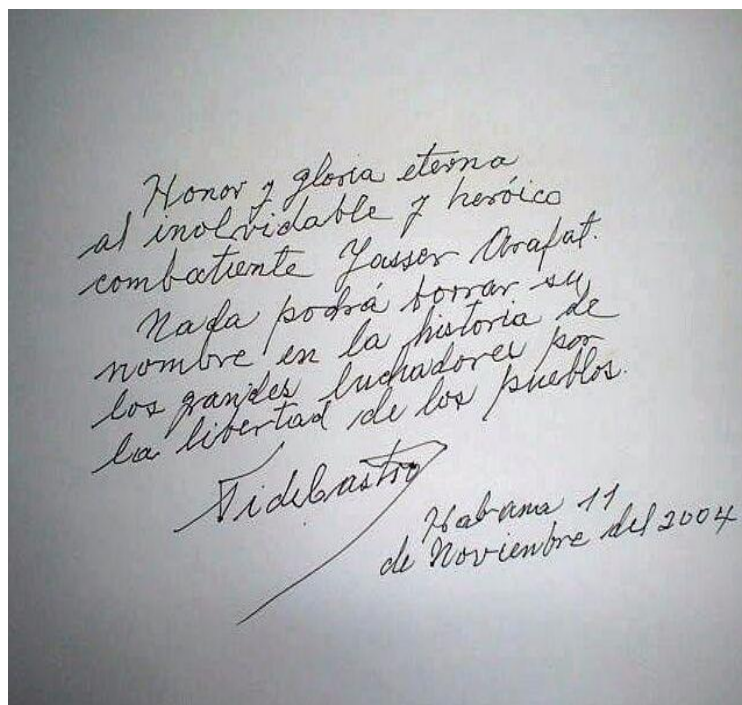 Honor y gloria eterna
al inolvidable y heróico
combatiente Yasser Arafat.
Nada podrá borrar su
nombre en la historia de
los grandes luchadores por
la libertad de los pueblos.
Fidel Castro
Habana 11
de Noviembre del 2004